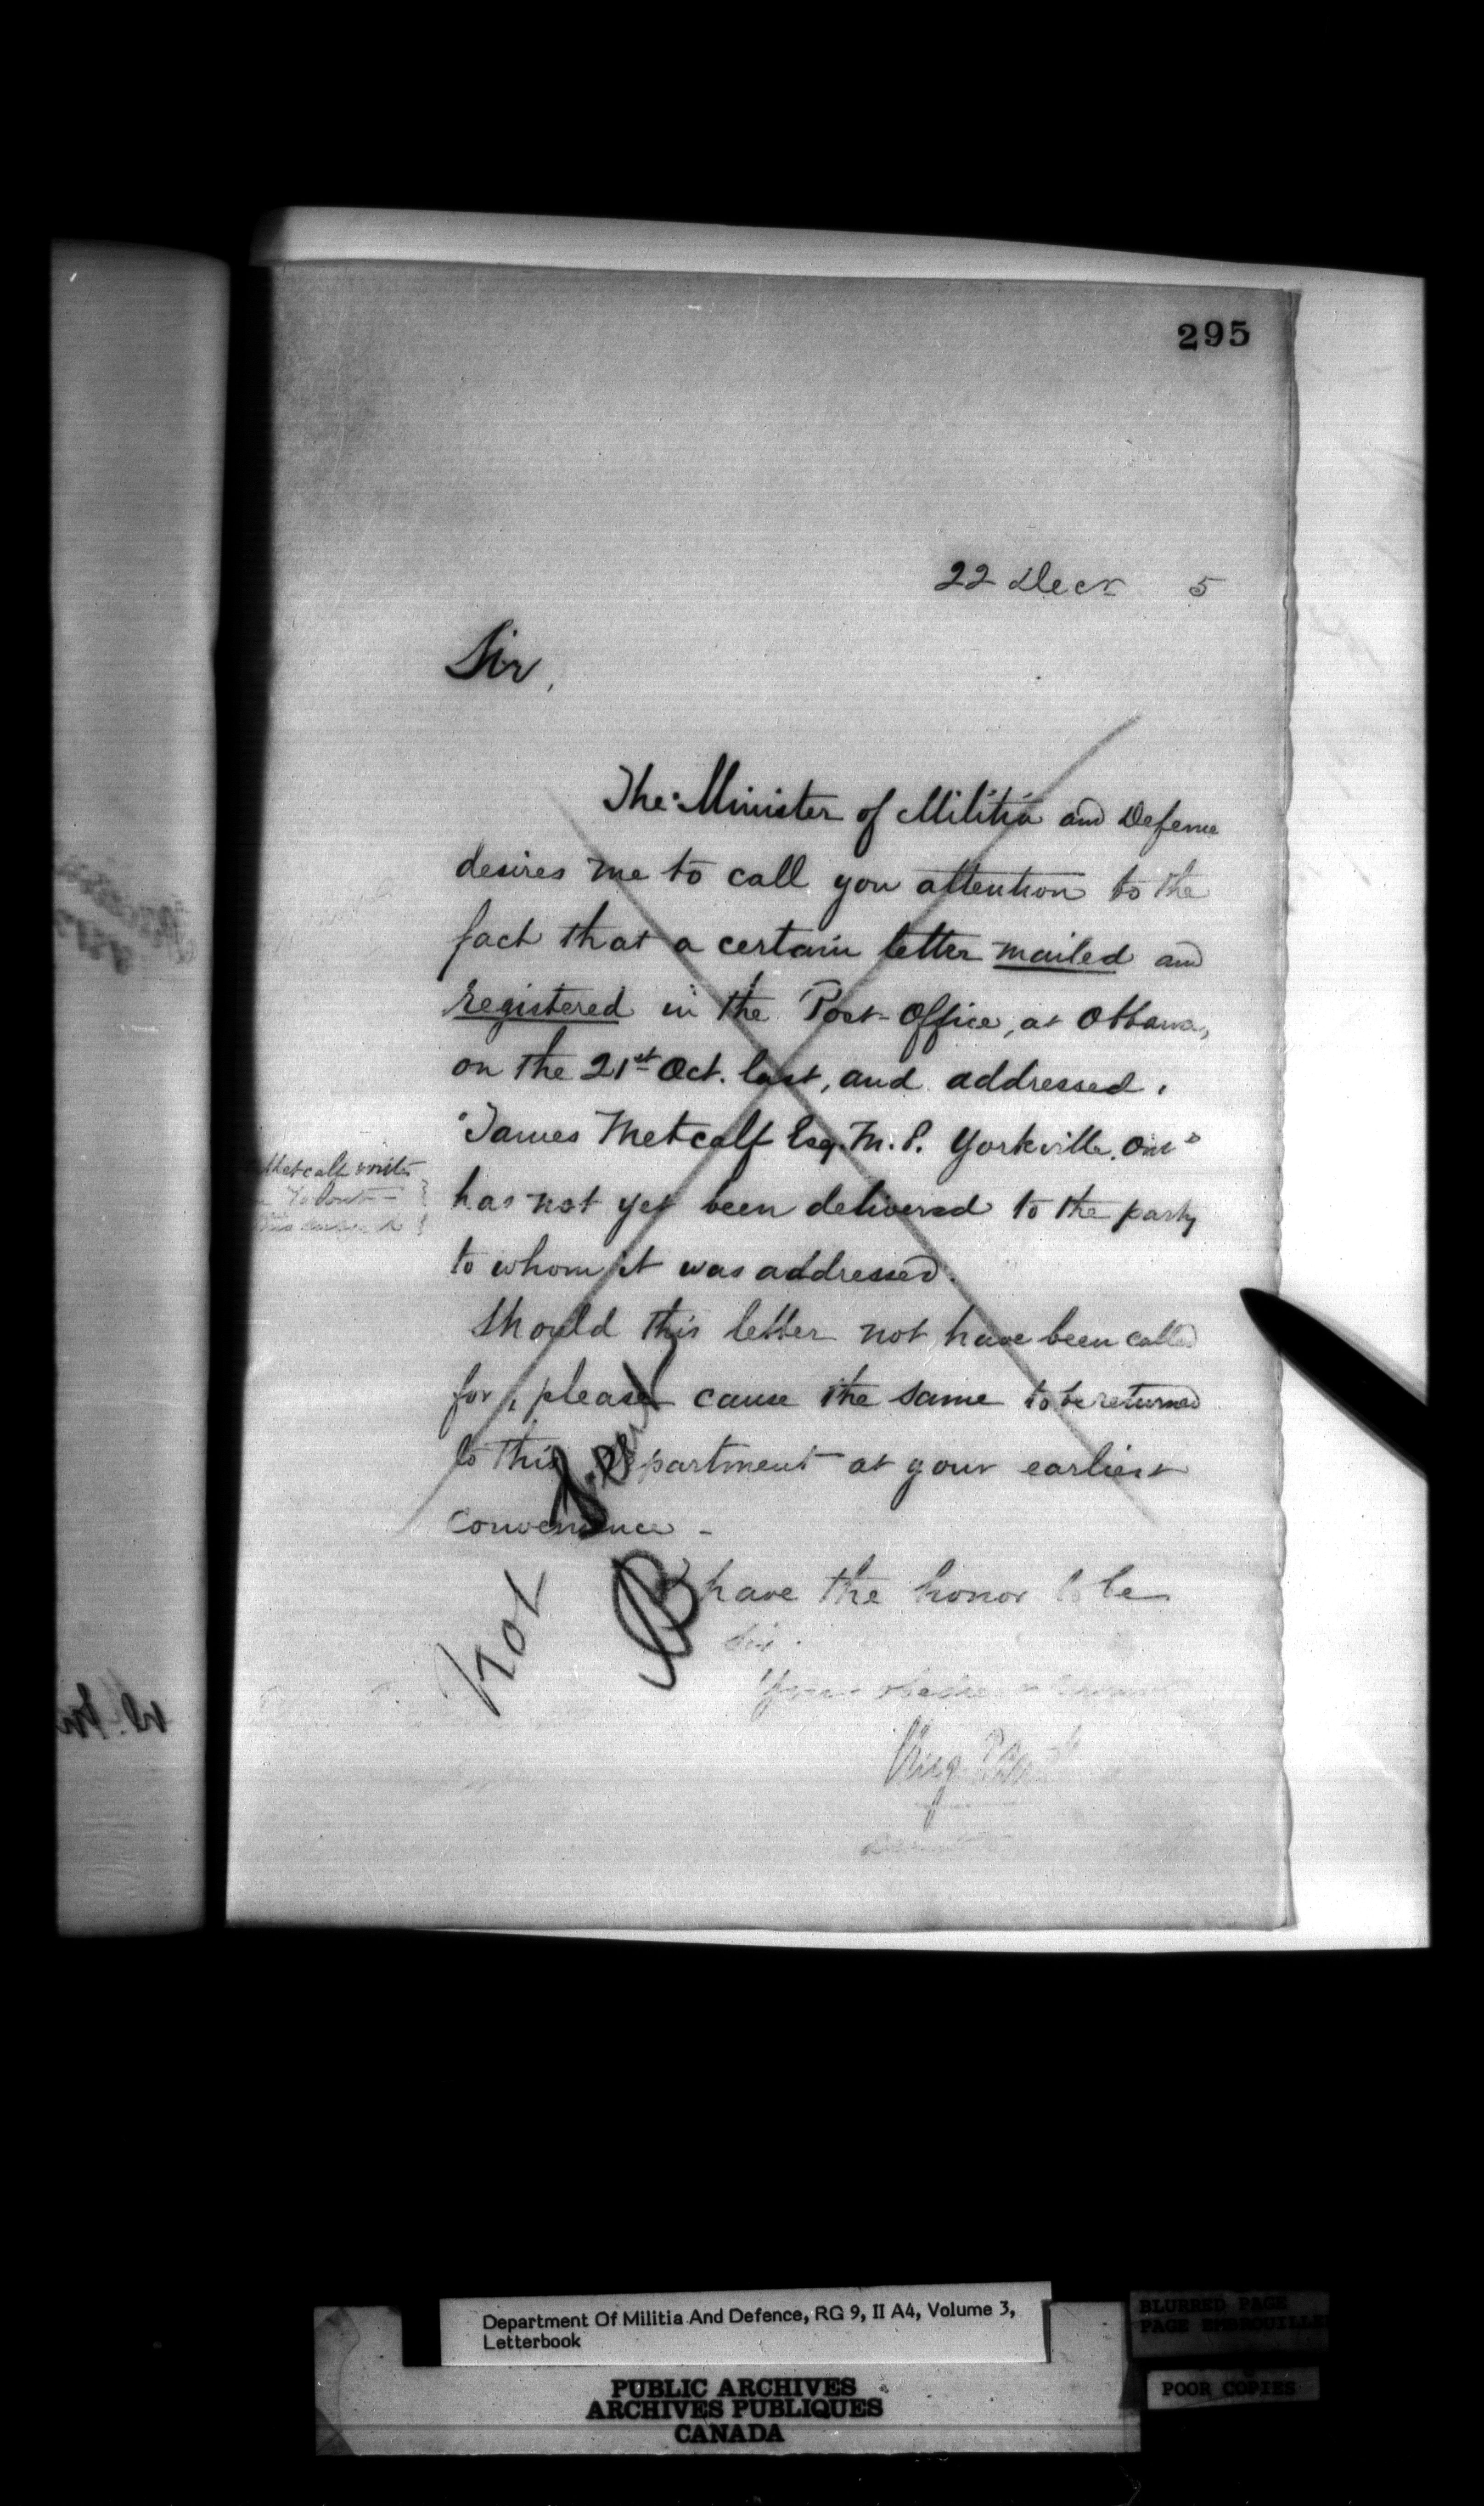 295
22 Decr 5
Sir,
The Minister of Militia and Defence
desires me to call you attention to the
fact that a certain letter mailed and
registered in the Post Office, at Ottawa,
on the 21st Oct. last, and addressed,
"James Metcalf Esq. M.P. Yorkville. Ont"
Metcalf writes
has not yet been delivered to the party
to whom it was addressed.
Should this letter not have been called
for, please cause the same to be returned
to this Department at your earliest
convenience -
Not
have the honor to be
Sir.
Your obedient
Department Of Militia And Defence, RG 9, II A4, Volume 3,
Letterbook
BLURRED PAGE
PAGE EMBROUILLE
PUBLIC ARCHIVES
ARCHIVES PUBLIQUES
CANADA
POOR COPIES